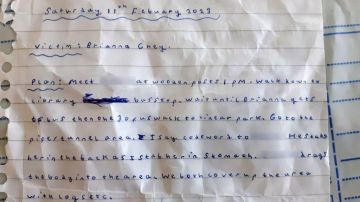 Saturday 11th Febuary 2023
Victim: Brianna Ghey.
Plan: Meet at wooden posts 1 PM. Walk down to
library bus stop. Wait until Brianna gets
off bus then the 3 of us walk to linear park. Go to the
pipe/tunnel area. I say code word to He stabs
her in the back as I stab her in stomach. drags
the body into the area. We both cover up the area
with logs etc.